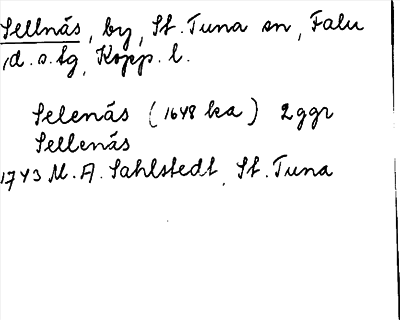 Sellnäs, by, St. Tuna sn, Falu
d. o. Lg, Kopp. l.
Selenäs (1648 ka) 2 ggr
Sellenäs
1743 M. A. Sahlstedt, St. Tuna